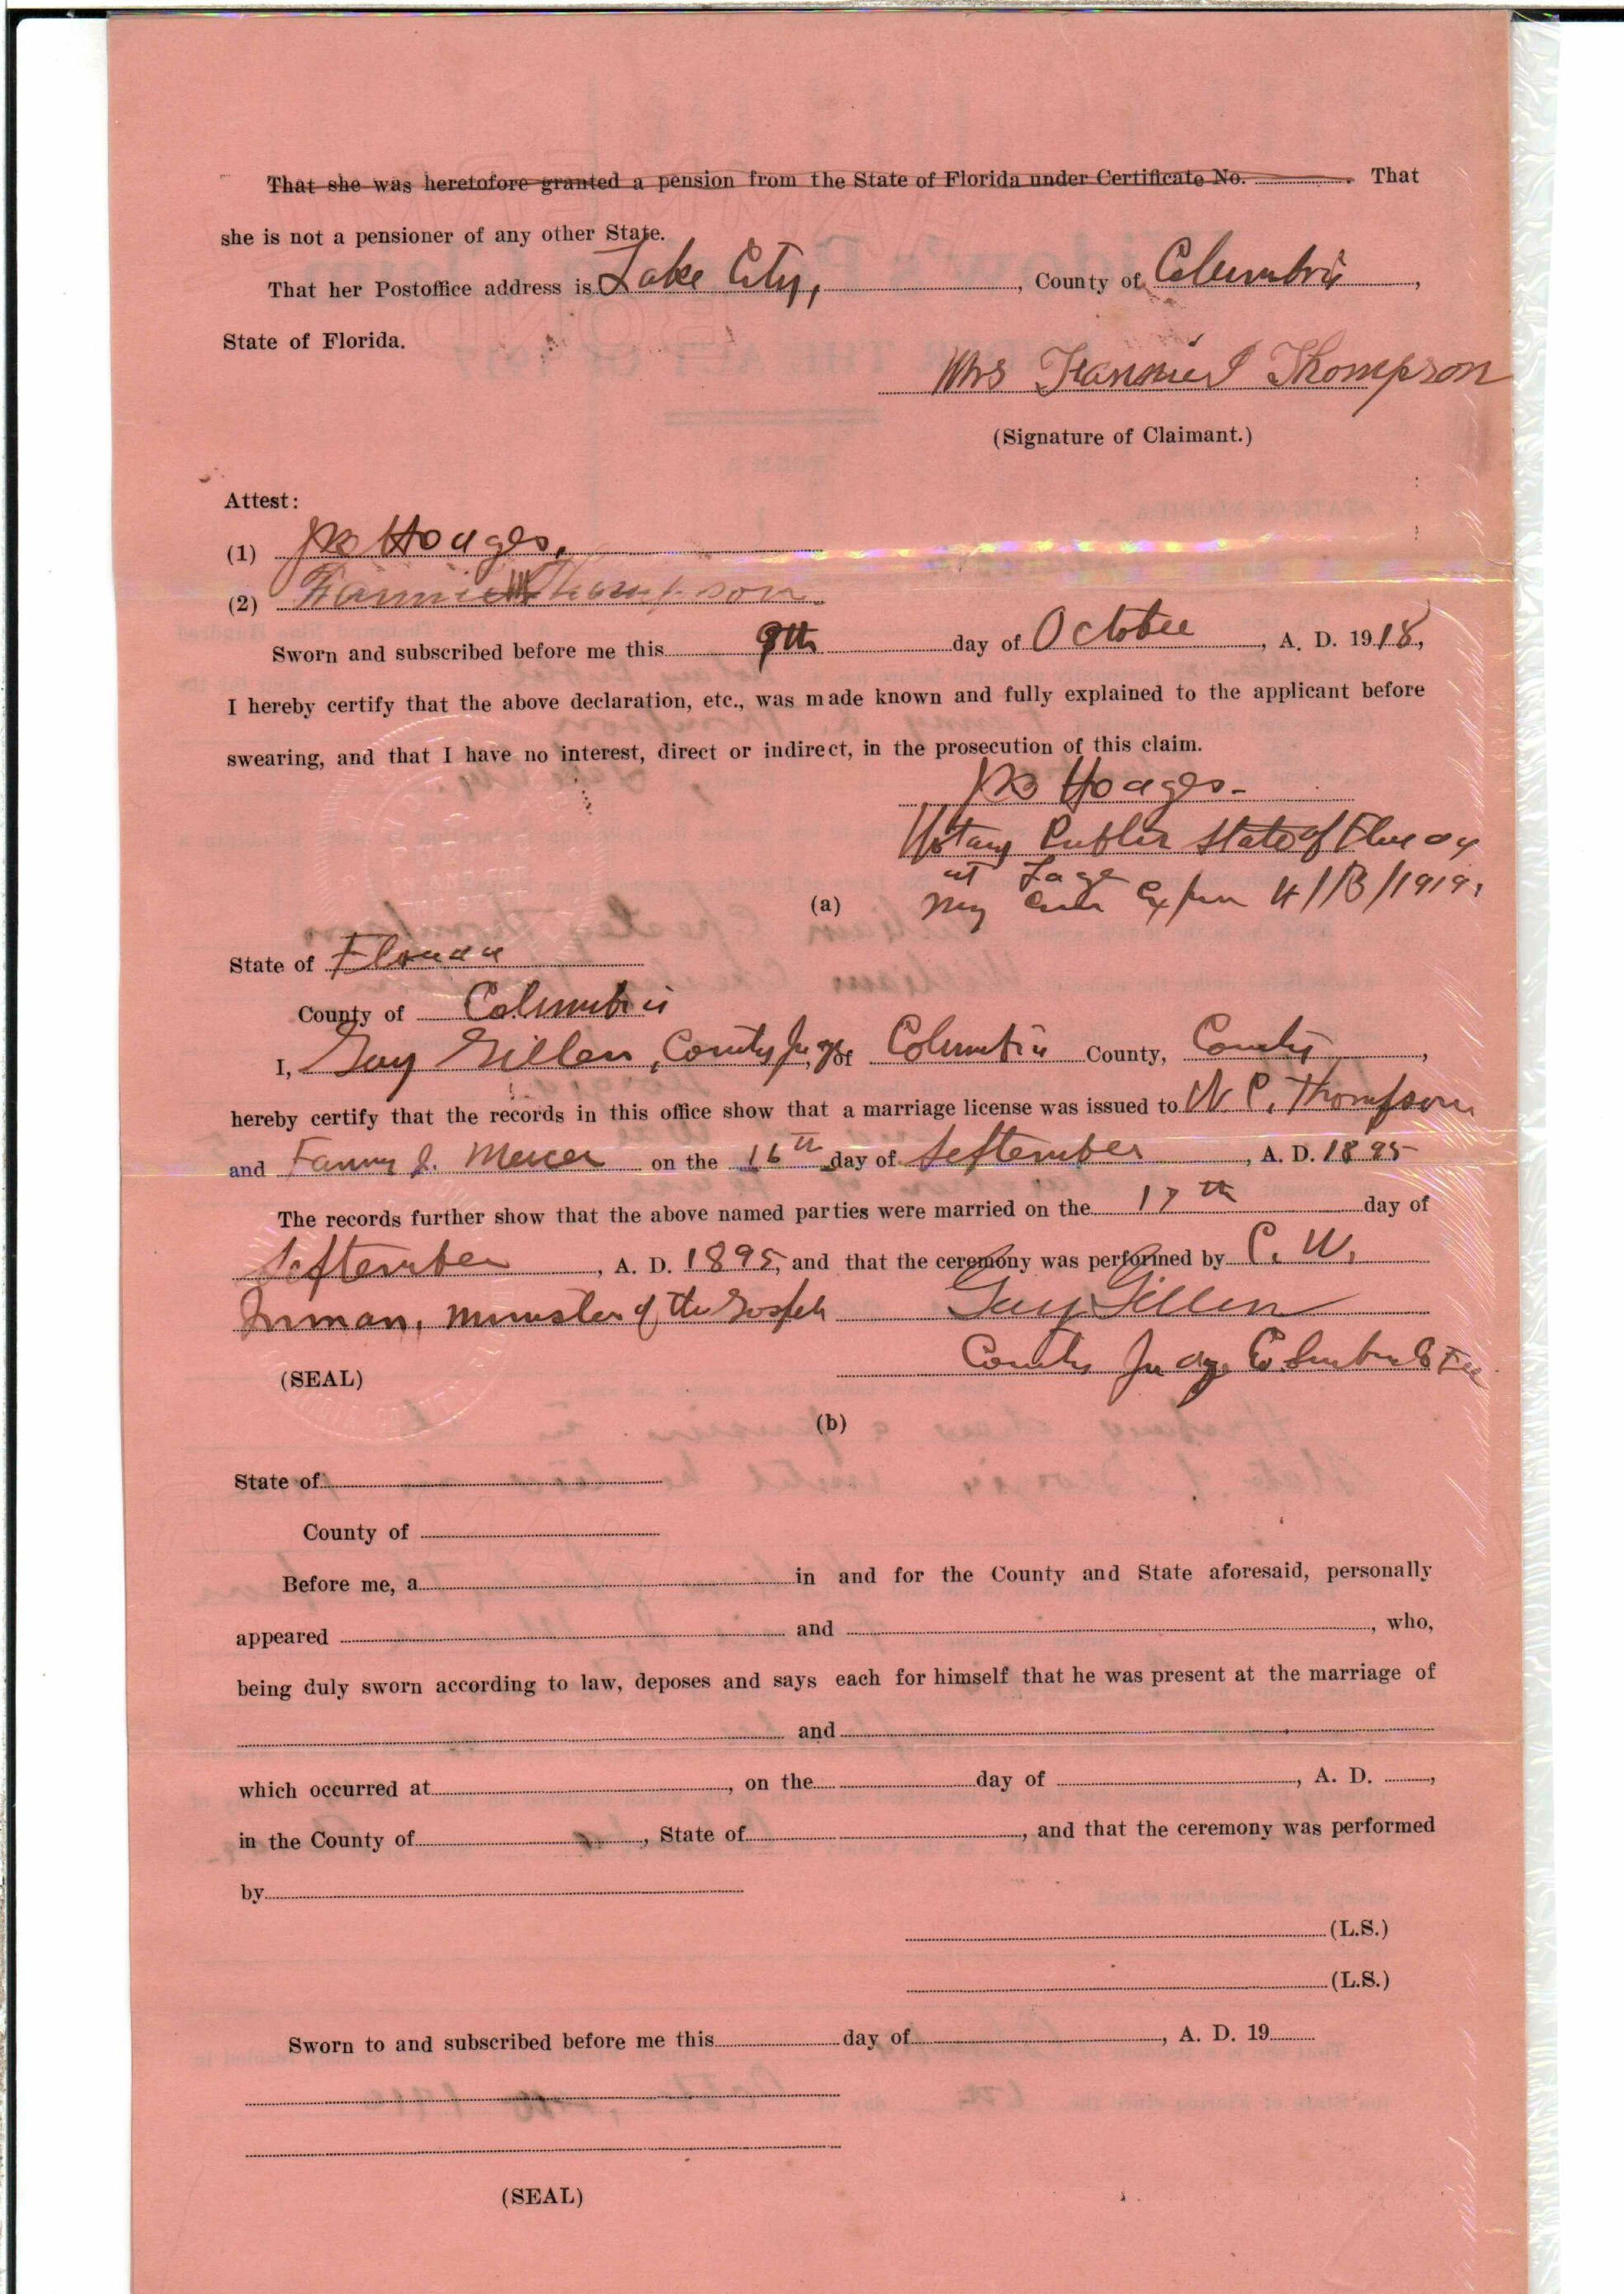 That she was heretofore granted a pension from the State of Florida under Certificate No. . That
she is not a pensioner of any other State.
That her Postoffice address is Lake City, , County of Columbia ,
State of Florida.
Mrs Fannie J Thompson
(Signature of Claimant.)
Attest:
(1) Hodges,
(2) Fannie Thompson
Sworn and subscribed before me this 9th day of October , A. D. 1918,
I hereby certify that the above declaration, etc., was made known and fully explained to the applicant before
swearing, and that I have no interest, direct or indirect, in the prosecution of this claim.
Hodges-
Notary Public State of Florida
at Large
(a) My Com Expires 4/13/1919,
State of Florida
County of Columbia
I, Guy Gillen, County Judge of Columbia County, County ,
hereby certify that the records in this office show that a marriage license was issued to W. C. Thompson
and Fanny J. Mercer on the 16th day of September , A. D. 1895
The records further show that the above named parties were married on the 17th day of
September , A. D. 1895, and that the ceremony was performed by C. W.
Inman, Minister of the Gospel Guy Gillen
(SEAL) County Judge Columbia Co Fla
(b)
State of
County of
Before me, a in and for the County and State aforesaid, personally
appeared and , who,
being duly sworn according to law, deposes and says each for himself that he was present at the marriage of
and
which occurred at , on the day of , A. D. ,
in the County of , State of , and that the ceremony was performed
by
(L.S.)
(L.S.)
Sworn to and subscribed before me this day of , A. D. 19
(SEAL)